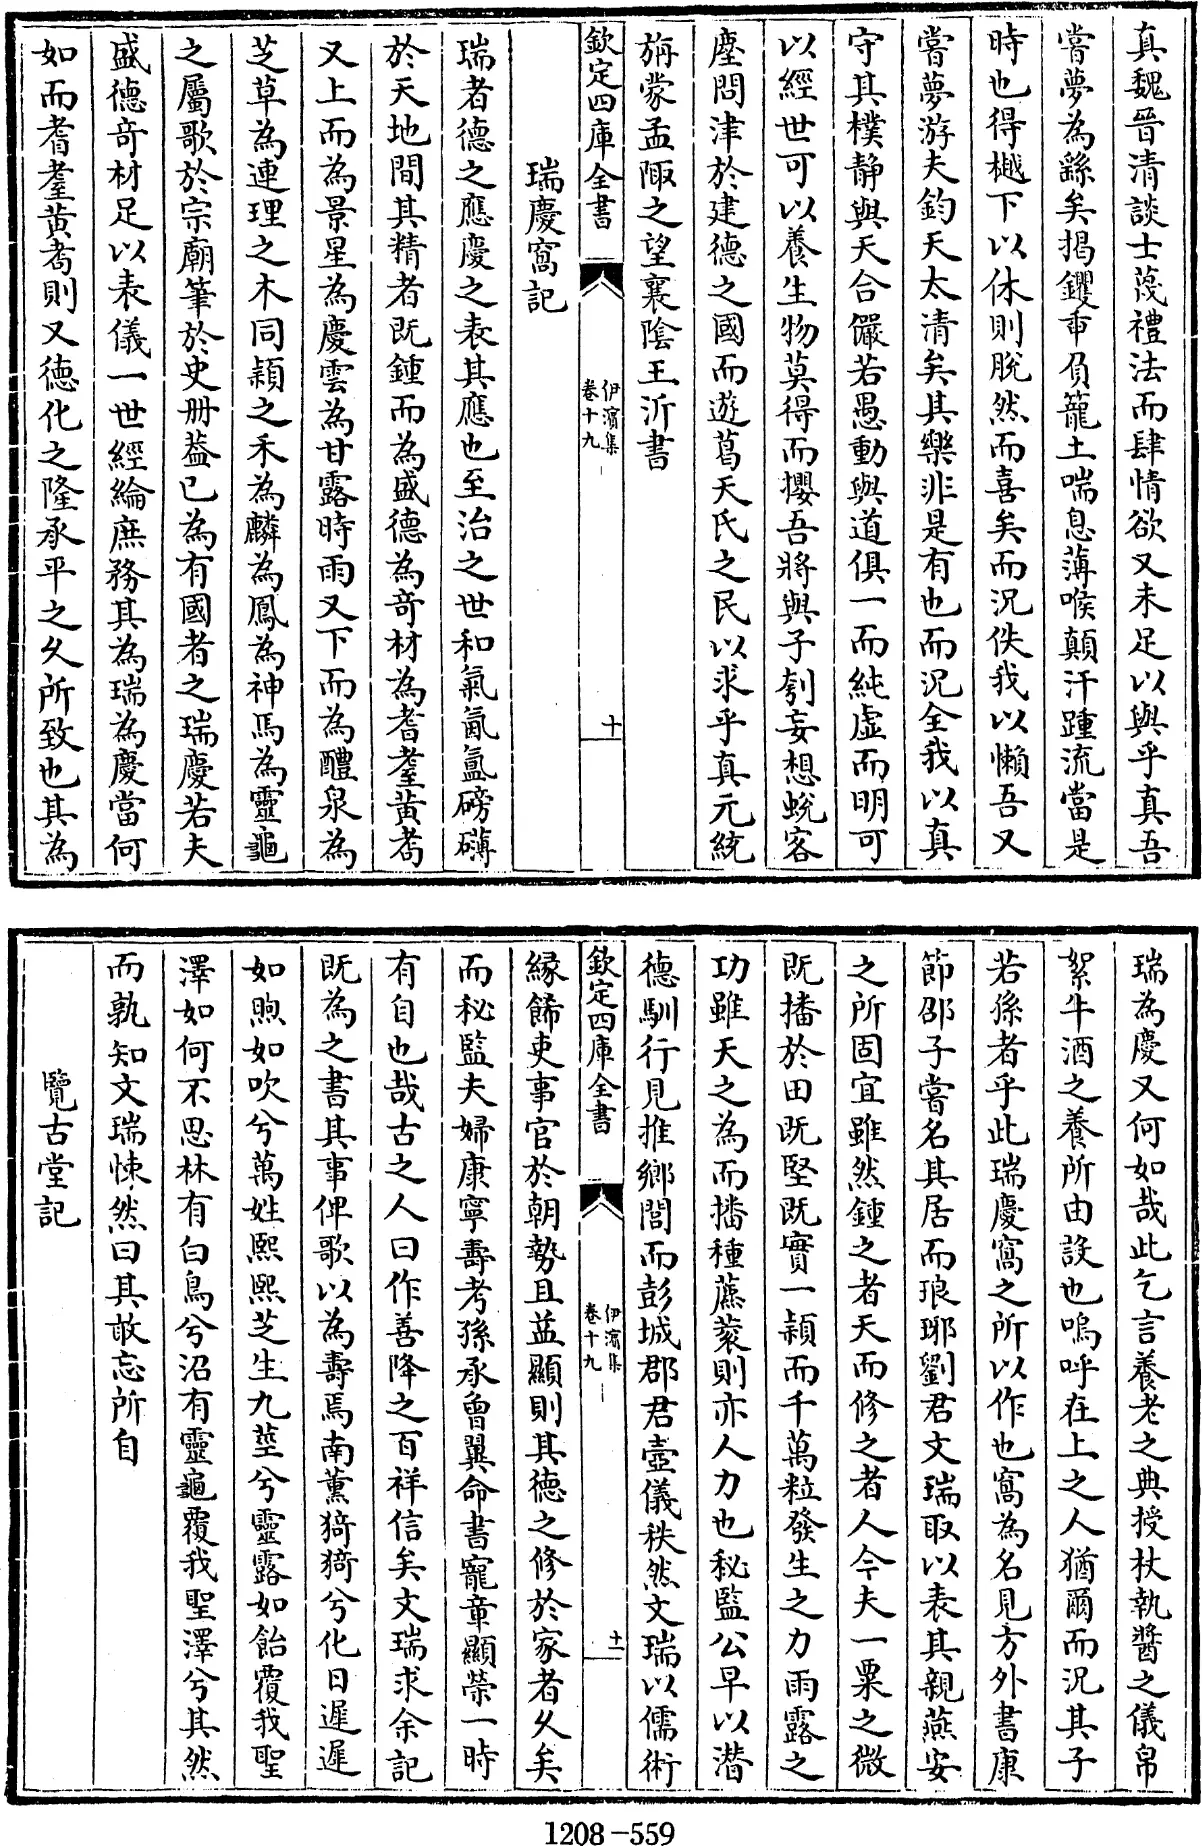 真魏晉清談士蔑禮法而肆情欲又未足以與乎真吾
嘗夢為繇矣揭钁臿負籠土喘息薄喉顛汗踵流當是
時也得樾下以休則脫然而喜矣而況佚我以懶吾又
嘗夢游夫鈞天太清矣其樂非是有也而況全我以真
守其樸靜與天合儼若愚動與道俱一而純虛而明可
以經世可以養生物莫得而攖吾將與子刳妄想蛻客
塵問津於建德之國而遊葛天氏之民以求乎真元統
旃蒙孟陬之望襄陰王沂書
欽定四庫全書
伊濱集
卷十九
十
瑞慶窩記
瑞者德之應慶之表其應也至治之世和氣氤氳磅礴
於天地間其精者既鍾而為盛德為奇材為耆耋黃耇
又上而為景星為慶雲為甘露時雨又下而為醴泉為
芝草為連理之木同穎之禾為麟為鳳為神馬為靈龜
之屬歌於宗廟筆於史册葢已為有國者之瑞慶若夫
盛德奇材足以表儀一世經綸庶務其為瑞為慶當何
如而耆耋黃耇則又德化之隆承平之久所致也其為
瑞為慶又何如哉此乞言養老之典授杖執醬之儀帛
絮牛酒之養所由設也嗚呼在上之人猶爾而況其子
若孫者乎此瑞慶窩之所以作也窩為名見方外書康
節邵子嘗名其居而琅琊劉君文瑞取以表其親燕安
之所固宜雖然鍾之者天而修之者人今夫一粟之微
既播於田既堅既實一穎而千萬粒發生之力雨露之
功雖天之為而播種藨蔉則亦人力也秘監公早以潛
德馴行見推鄉閭而彭城郡君壼儀秩然文瑞以儒術
欽定四庫全書
伊濱集
卷十九
十一
緣飾吏事官於朝勢且益顯則其德之修於家者久矣
而秘監夫婦康寧壽考孫承曾翼命書寵章顯榮一時
有自也哉古之人曰作善降之百祥信矣文瑞求余記
既為之書其事俾歌以為壽焉南薰猗猗兮化日遲遲
如煦如吹兮萬姓熙熙芝生九莖兮靈露如飴覆我聖
澤如何不思林有白鳥兮沼有靈龜覆我聖澤兮其然
而孰知文瑞悚然曰其敢忘所自
覽古堂記
1208-559